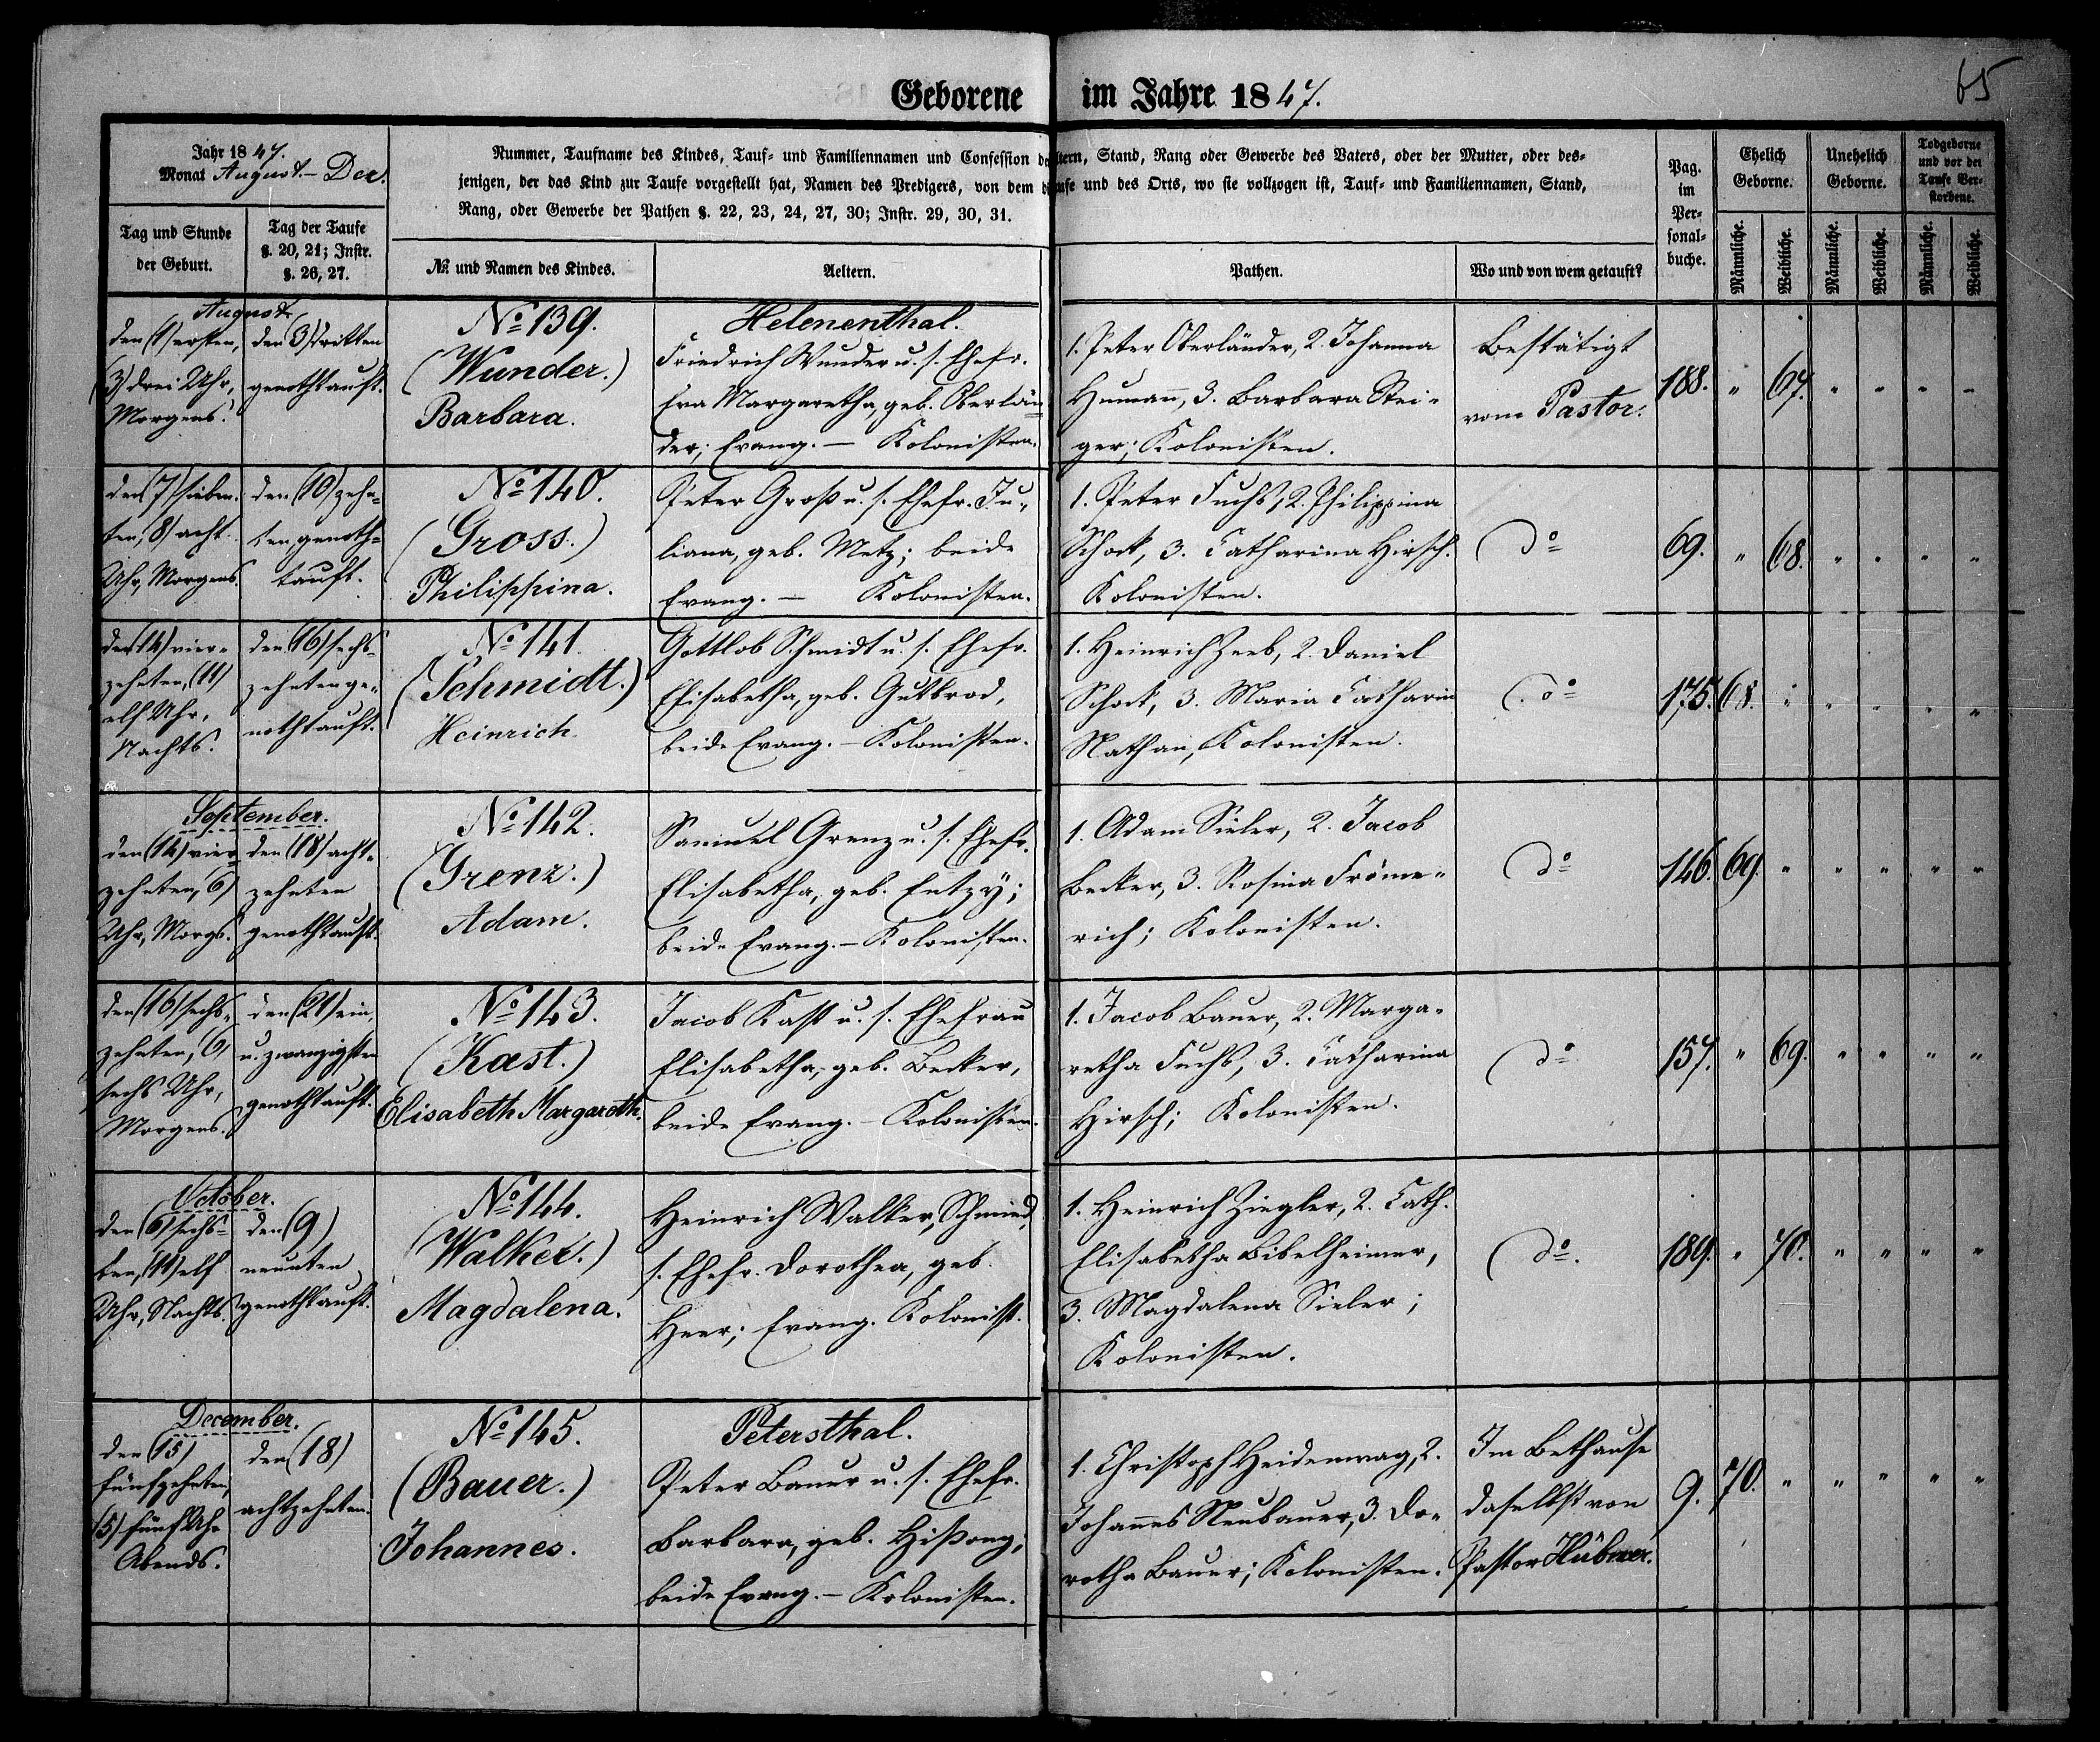 65
Geborene im Jahre 1847.
Jahr 1847.
Monat August - Dec.
Nummer, Taufname des Kindes, Tauf- und Familiennamen und Confession der Aeltern, Stand, Rang oder Gewerbe des Vaters, oder der Mutter, oder des-
jenigen, der das Kind zur Taufe vorgestellt hat, Namen des Predigers, von dem die Taufe und des Orts, wo sie vollzogen ist, Tauf- und Familiennamen, Stand,
Rang, oder Gewerbe der Pathen §. 22, 23, 24, 27, 30; Instr. 29, 30, 31.
Tag und Stunde
der Geburt.
Tag der Taufe
§. 20, 21; Instr.
§. 26, 27.
№ und Namen des Kindes.
Aeltern.
Pathen.
Wo und von wem getauft?
Pag.
im
Per-
sonal-
buche.
Ehelich
Geborne.
Unehelich
Geborne.
Todgeborne
und vor der
Taufe Ver-
storbene.
Männliche.
Weibliche.
Männliche.
Weibliche.
Männliche.
Weibliche.
August.
den (1) ersten,
(3) drei Uhr,
Morgens.
den (3) dritten
genothtauft.
№ 139.
(Wunder.)
Barbara.
Helenenthal.
Friedrich Wunder u. s. Ehefr.
Eva Margaretha, geb. Oberlän-
der; Evang. — Kolonisten.
1. Peter Oberländer, 2. Johanna
Humañ, 3. Barbara Stei-
ger; Kolonisten.
Bestätigt
vom Pastor.
188. " 67. " " " "
den (7) sieben-
ten, (8) acht
Uhr, Morgens.
den (10) zehn-
ten, genoth-
tauft.
№ 140.
(Gross.)
Philippina.
Peter Groß u. s. Ehefr. Ju-
liana, geb. Metz; beide
Evang. — Kolonisten.
1. Peter Fuchs, 2. Philippina
Schock, 3. Catharina Hirsch.
Kolonisten.
do
69. " 68. " " " "
den (14) vier-
zehnten, (11)
elf Uhr,
Nachts.
den (16) sechs-
zehnten ge-
nothtauft.
№ 141.
(Schmidt.)
Heinrich
Gottlob Schmidt u. s. Ehefr.
Elisabetha, geb. Gutbrod,
beide Evang. — Kolonisten.
1. Heinrich Zeeb, 2. Daniel
Schock, 3. Maria Catharin
Nathan, Kolonisten.
do
175. 68. " " " " "
September.
den (14) vier-
zehnten, (6)
Uhr, Morgs.
den (18) acht-
zehnten
genothtauft.
№ 142.
(Grenz.)
Adam.
Samuel Grenz u. s. Ehefr.
Elisabetha, geb. Entzy;
beide Evang. — Kolonisten.
1. Adam Sieler, 2. Jacob
Becker, 3. Rosina Fröme-
rich; Kolonisten.
do
146. 69. " " " " "
den (16) sechs-
zehnten, (6)
sechs Uhr,
Morgens.
den (21) ein
u. zwanzigsten
genothtauft.
№ 143.
(Kast.)
Elisabeth Margareth.
Jacob Kast u. s. Ehefrau
Elisabetha, geb. Becker,
beide Evang. — Kolonisten.
1. Jacob Bauer, 2. Marga-
retha Fuchs, 3. Catharina
Hirsch; Kolonisten.
do
157. " 69. " " " "
October.
den (6) sechs-
ten, (11) elf
Uhr, Nachts.
den (9)
neunten
genothtauft.
№ 144.
(Walker.)
Magdalena.
Heinrich Walker, Schmied,
s. Ehefr. Dorothea, geb.
Heer; Evang. Kolonist.
1. Heinrich Ziegler, 2. Cath.
Elisabetha Bibelheimer,
3. Magdalena Sieler;
Kolonisten.
do.
189. " 70. " " " "
December.
den (15)
fünfzehnten,
(5) fünf Uhr
Abends.
den (18)
achtzehnten.
№ 145.
(Bauer.)
Johannes.
Petersthal.
Peter Bauer u. s. Ehefr.
Barbara, geb. Hißong;
beide Evang. — Kolonisten.
1. Christoph Heidenwag, 2.
Johannes Neubauer, 3. Do-
rotha Bauer; Kolonisten.
Im Bethause
daselbst von
Pastor Hübner.
9. 70. " " " " "